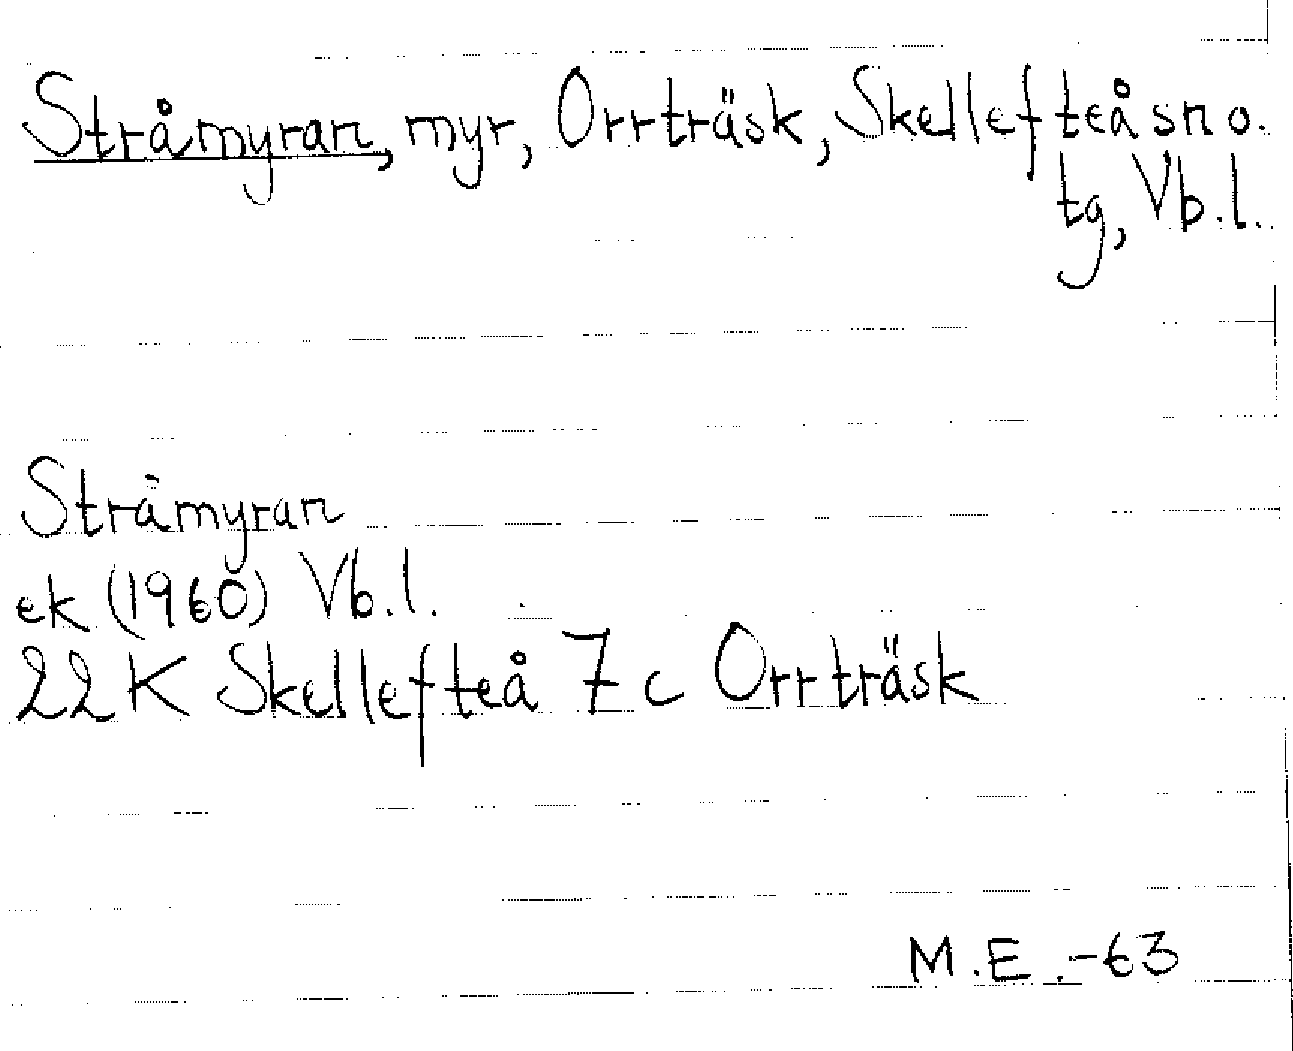 Stråmyran, myr, Orrträsk, Skellefteå sn o.
tg, Vb.l.
Stråmyran
ek (1960) Vb.l.
22 K Skellefteå 7 c Orrträsk
M.E.-63